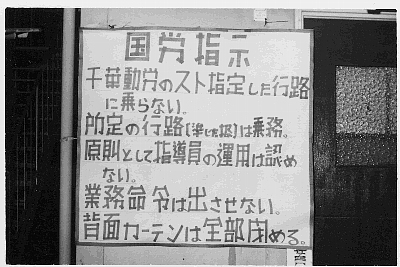 国労指示
千葉動労のスト指定した行路
に乗らない。
所定の行路(準じた扱)は乗務。
原則として指導員の運用は認め
ない。
業務命令は出させない。
背面カーテンは全部閉める。